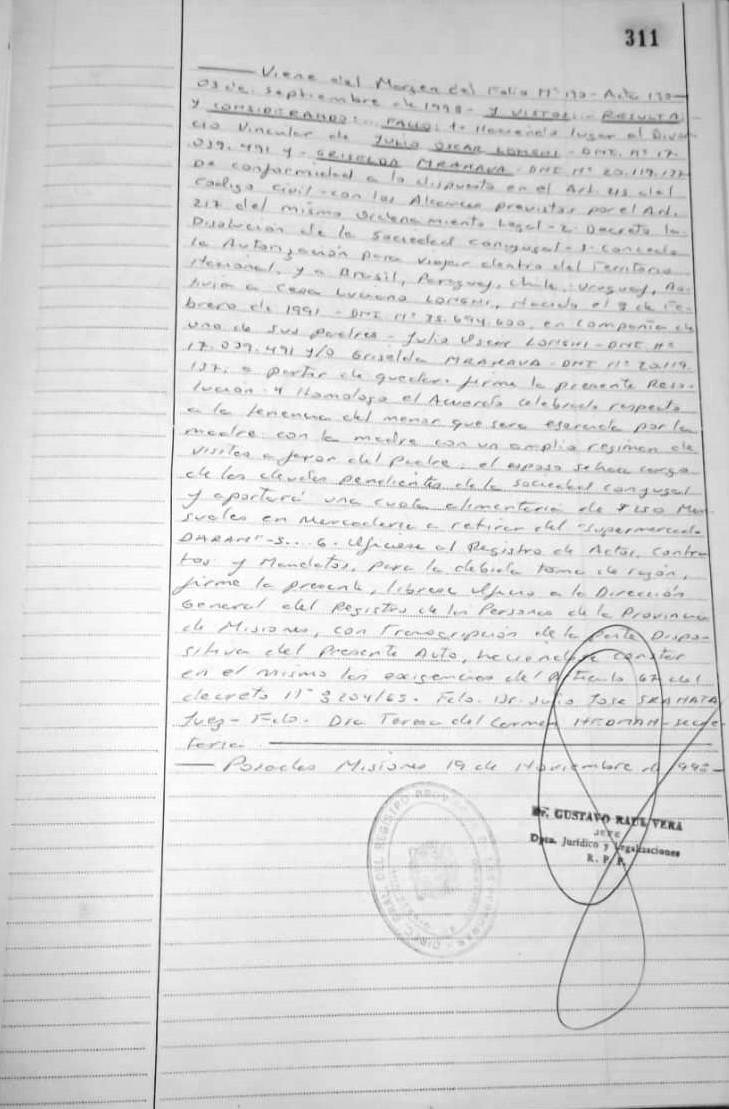 311
Viene del Margen del Folio Nº 170 - Acta 170
03 de septiembre de 1998 - Y VISTOS:... RESULTA:
Y CONSIDERANDO:... FALLO: 1- Haciendo lugar al Divor-
cio Vincular de JULIO OSCAR LONGHI - DNI. Nº 17.
039.491 y - GRISELDA MRAHAVA - DNI Nº 20.119.137
De conformidad a lo dispuesto en el Art. 215 del
Codigo Civil - con los Alcances previstos por el Art.
217 del mismo Ordenamiento Legal - 2- Decreto la
Disolución de la Sociedad conyugal - 3- Concedo
la Autorización para viajar dentro del Territorio
Nacional, y a Brasil, Paraguay, Chile, Uruguay, Bo-
livia a Luciano LONGHI, Nacido el 9 de Fe-
brero de 1991 - DNI Nº 35.694.600, en compañia de
uno de sus padres - Julio Oscar LONGHI - DNI. Nº
17.039.491 y/o Griselda MRAHAVA - DNI Nº 20.119.
137. a partir de quedar firme la presente Reso-
lución - 4 Homologo el Acuerdo celebrado respecto
a la tenencia del menor que sera ejercida por la
madre. con la madre con un amplio regimen de
visitas a favor del Padre, el esposo se hace cargo
de las deudas pendientes de la sociedad conyugal
y aportará una cuota alimentaria de $ 150 Men-
suales en Mercaderia a retirar del "Supermercado
DARAN" - 5... 6. Ofíciese al Registro de Actos, Contra-
tos y Mandatos, para la debida toma de razón,
firme la presente, librese Oficio a la Dirección
General del Registro de las Personas de la Provincia
de Misiones, con Transcripción de la parte Dispo-
sitiva del Presente Auto, haciéndose constar
en el mismo las exigencias del Articulo 67 del
decreto Nº 8204/63. Fdo. Dr. Julio Jose
Juez - Fdo. Dra Teresa del Carmen HEDMAN - Secre-
taria.
Posadas Misiones 19 de Noviembre de 199
Dr. GUSTAVO RAUL VERA
JEFE
Dpto. Jurídico y Legalizaciones
R. P. P.